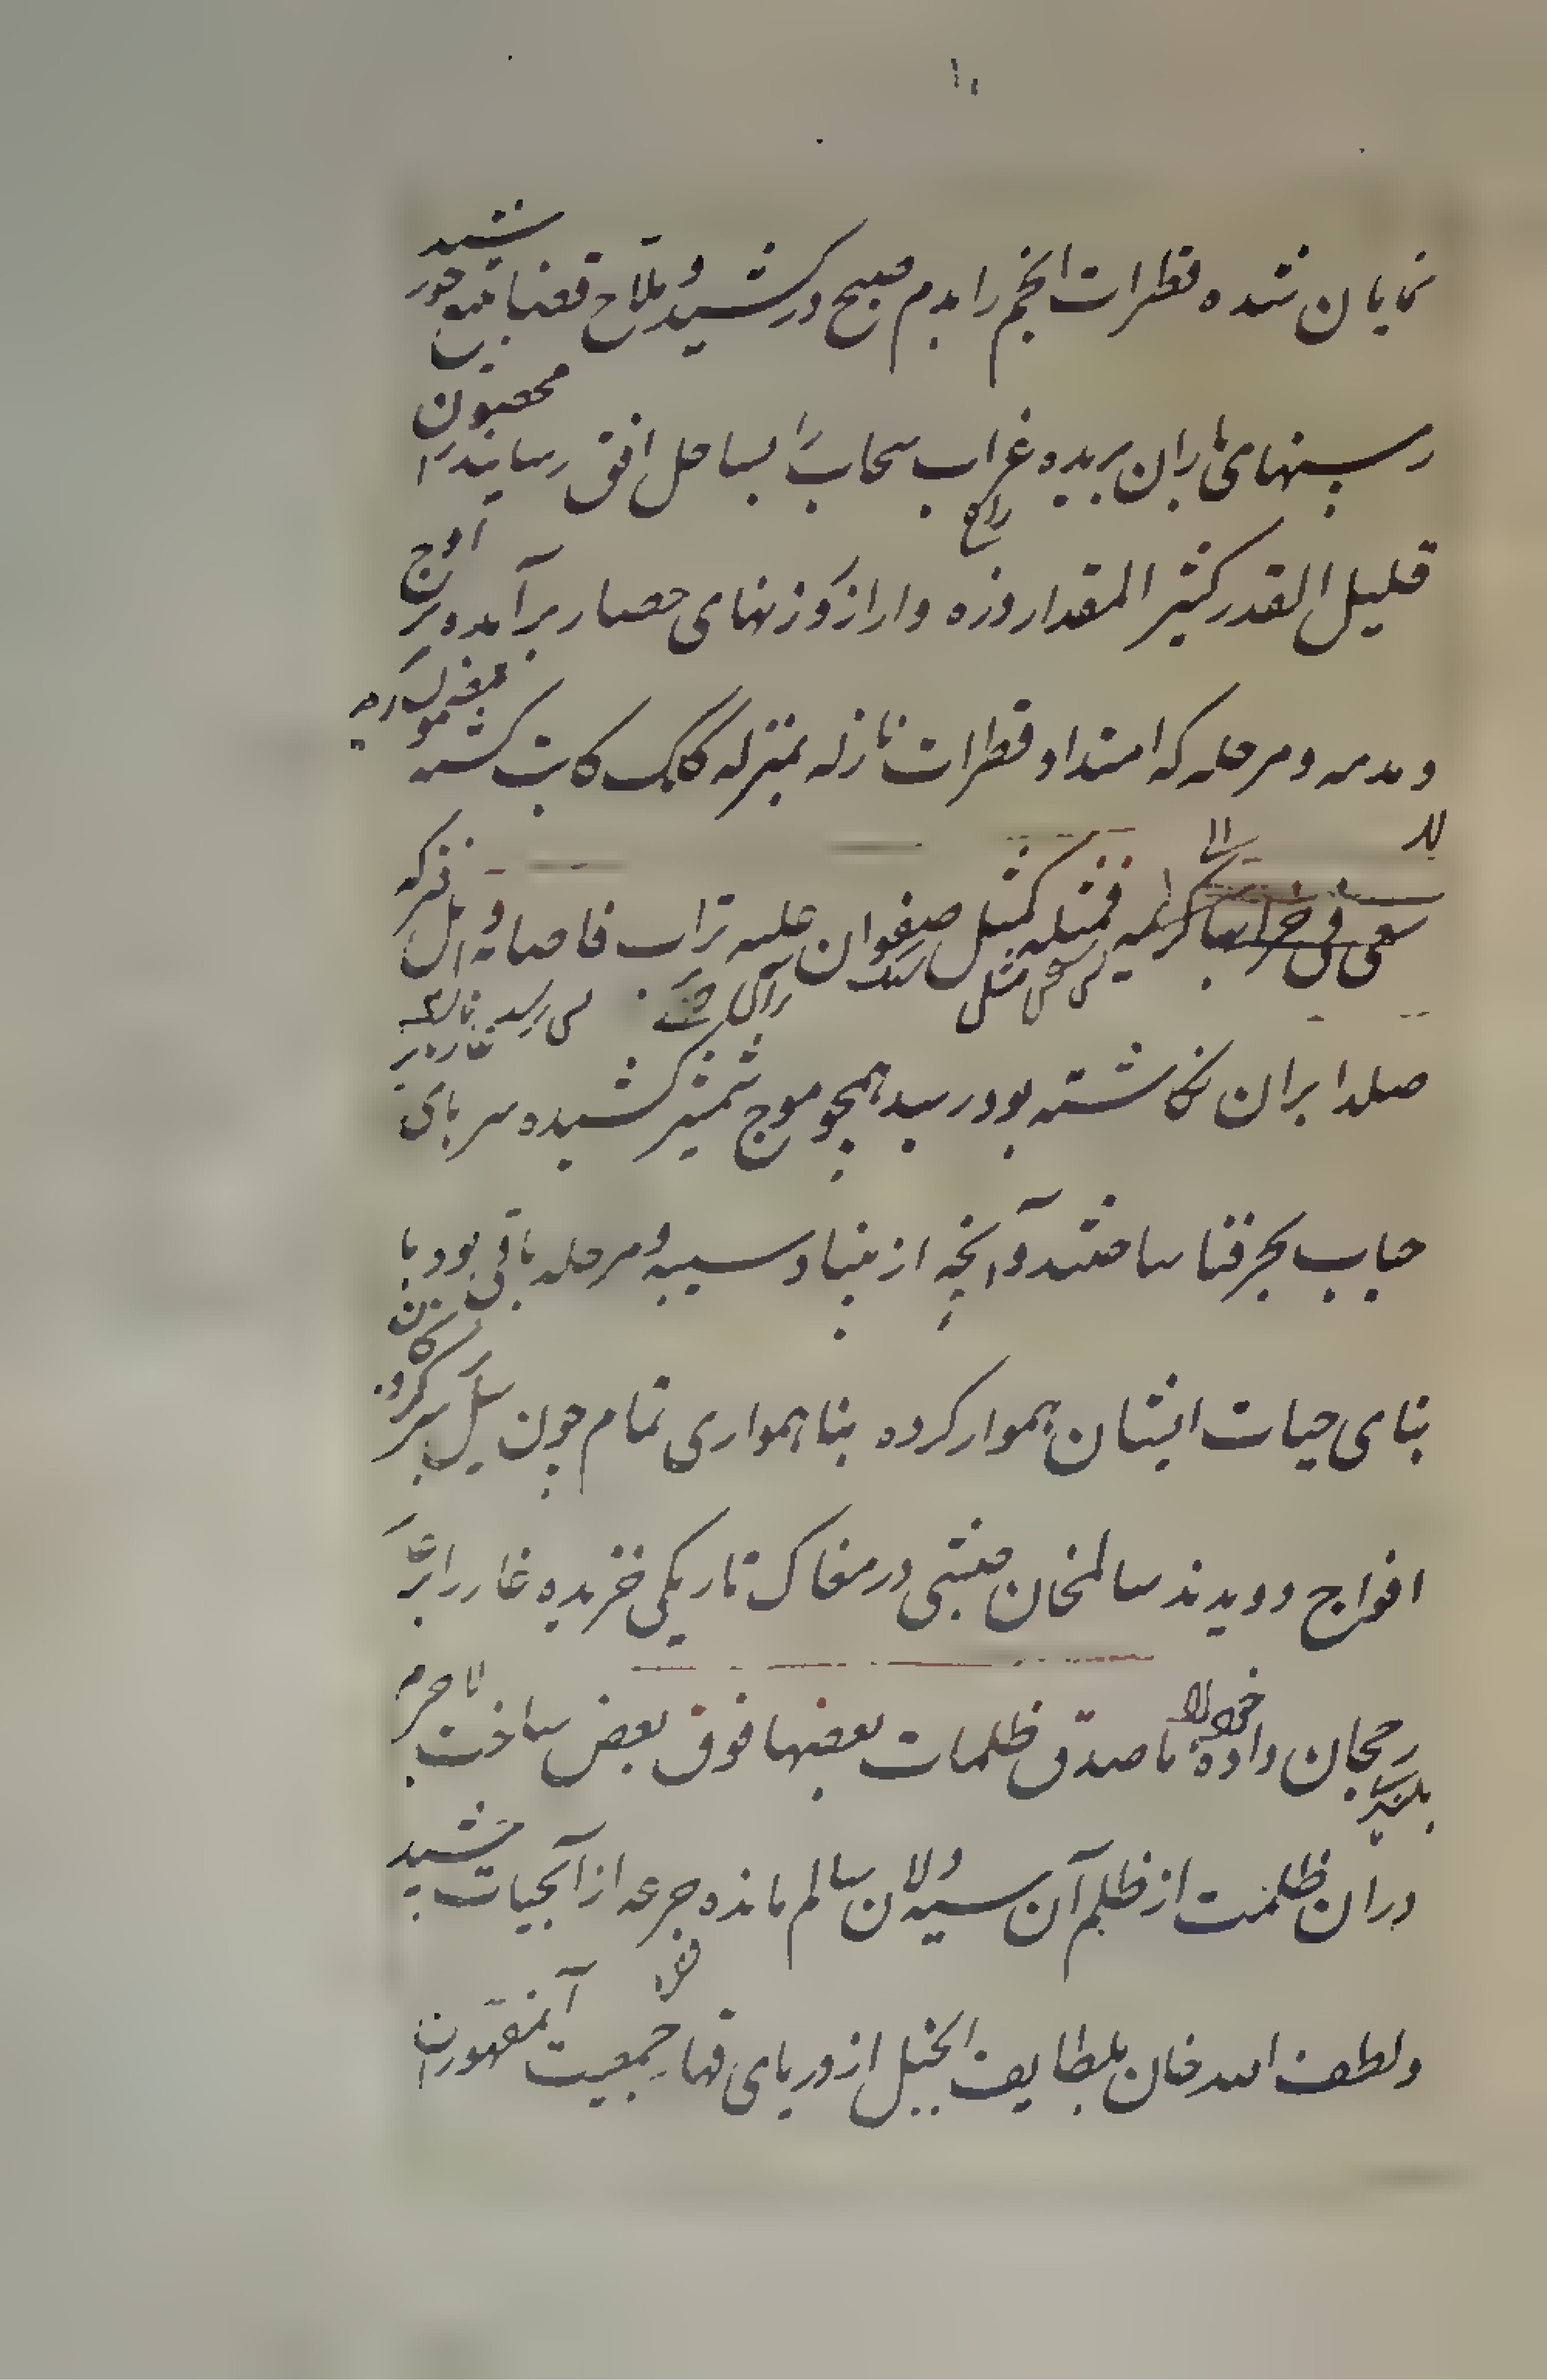 ۱۰
نمایان شده قطرات انجم را بدم صبح درکشید و ملاح قضا تیغ خورشید
رسنهای باران بریده غراب سحاب را بساحل افق رسانید محصوران
قلیل القدر کثیر المقدار وزه وار از وزنهای حصار برآمده بر اوج
و مرحله که امتداد قطرات نازله بمنزله کلک کاتب گشته
سعی فی خرابها کریمه فمثله کمثل صفوان علیه تراب فاصابه وابل فترکه
صلدا بران نگاشته بود رسید همچو موج شمشیر کشیده سربای
حباب بحر فنا ساختند و آنچه از بنیاد سیبه و مرحله باقی بود با
بنای حیات ایشان هموار کرده بناهمواری تمام چون سیل بر سرکردگان
افواج دویدند سالمخان حبشی در مغاک تاریکی خزیده غار را بر
رجحان داده ماصدق ظلمات بعضها فوق بعض ساخت لاجرم
دران ظلمت از ظلم آن سیه دلان سالم مانده جرعه از آبحیات چشید
ولطف الله خان بلطایف الحیل از دریای قهار جمعیت آنمقهوران